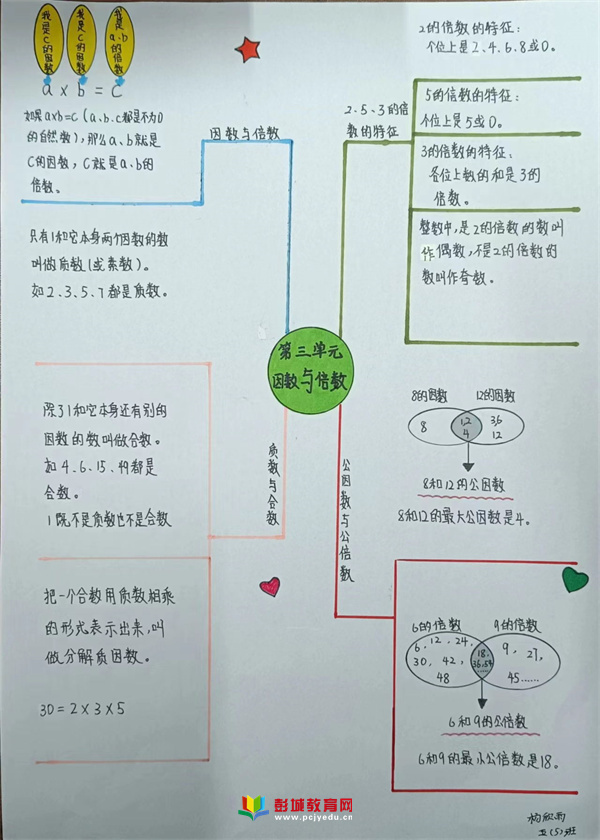 我是c的因数
我是c的因数
我是a、b的倍数
a × b = c
如果a×b=c（a、b、c都是不为0
的自然数），那么a、b就是
C的因数，C就是a、b的
倍数。
因数与倍数
只有1和它本身两个因数的数
叫做质数（或素数）。
如2、3、5、7都是质数。
除了1和它本身还有别的
因数的数叫做合数。
如4、6、15、49都是
合数。
1既不是质数也不是合数
把一个合数用质数相乘
的形式表示出来，叫
做分解质因数。
30=2×3×5
质数与合数
第三单元
因数与倍数
2、5、3的倍
数的特征
2的倍数的特征：
个位上是2、4、6、8或0。
5的倍数的特征：
个位上是5或0。
3的倍数的特征：
各位上数的和是3的
倍数。
整数中，是2的倍数的数叫
作偶数，不是2的倍数的
数叫作奇数。
公因数与公倍数
8的因数 12的因数
8 1,2 3,6
4 12
8和12的公因数
8和12的最大公因数是4。
6的倍数 9的倍数
6、12、24、 18、 9、27、
30、42、 36、54
48 …… 45……
6和9的公倍数
6和9的最小公倍数是18。
五（5）班
彭城教育网
www.pcjyedu.cn